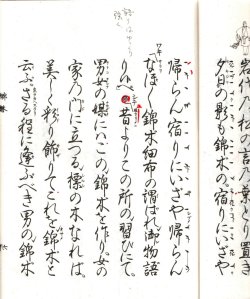 夕日の影も錦木の。宿りにいざや
帰らん宿りにいざや帰らん
なほ〳〵錦木細布の謂はれ御物語
り候へ 昔よりこの所の習ひにて。
男女の媒にはこの錦木を作り女の
家の門に立つる標の木なれば。
美しく彩り飾りてこれを錦木と
云ふさる程に逢ふべき男の錦木